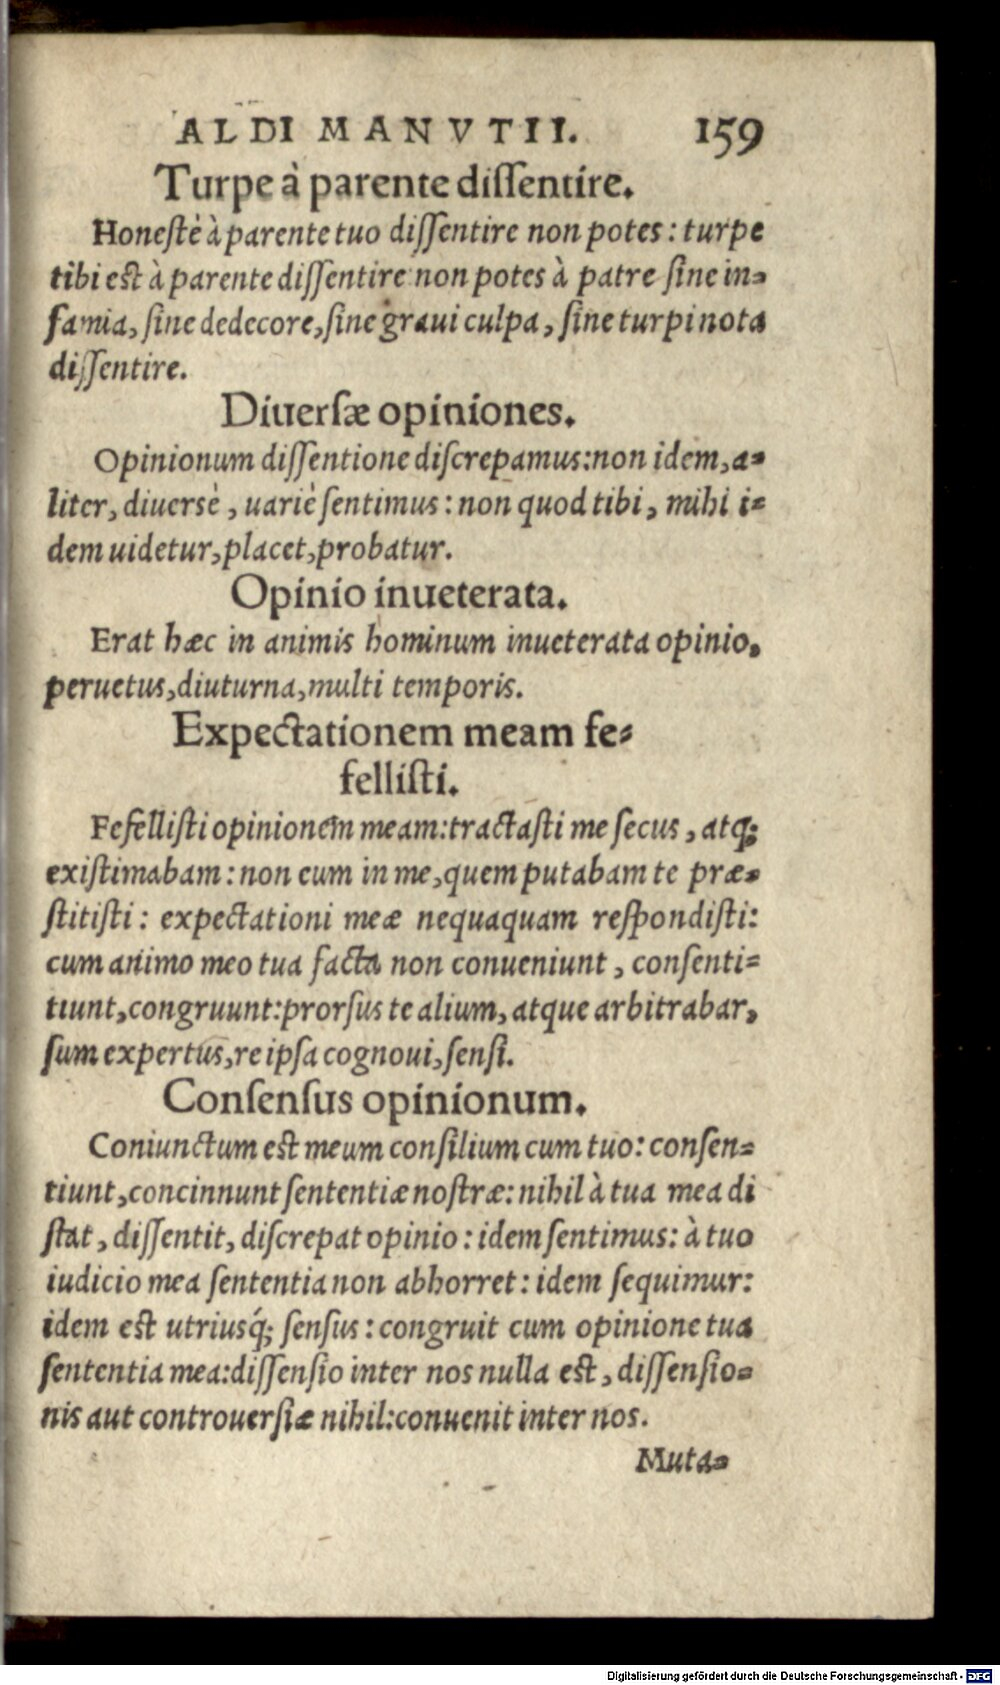 ALDI MANVTII. 159
Turpe à parente dissentire.
Honestè à parente tuo dissentire non potes: turpe
tibi est à parente dissentire non potes à patre sine in-
famia, sine dedecore, sine graui culpa, sine turpi nota
dissentire.
Diuersæ opiniones.
Opinionum dissentione discrepamus: non idem, a-
liter, diuersè, uariè sentimus: non quod tibi, mihi i-
dem uidetur, placet, probatur.
Opinio inueterata.
Erat hæc in animis hominum inueterata opinio,
peruetus, diuturna, multi temporis.
Expectationem meam fe-
fellisti.
Fefellisti opinionem meam: tractasti me secus, atq;
existimabam: non eum in me, quem putabam te præ-
stitisti: expectationi meæ nequaquam respondisti:
cum animo meo tua facta non conueniunt, consenti-
tiunt, congruunt: prorsus te alium, atque arbitrabar,
sum expertus, re ipsa cognoui, sensi.
Consensus opinionum.
Coniunctum est meum consilium cum tuo: consen-
tiunt, concinnunt sententiæ nostræ: nihil à tua mea di
stat, dissentit, discrepat opinio: idem sentimus: à tuo
iudicio mea sententia non abhorret: idem sequimur:
idem est utriusq́; sensus: congruit cum opinione tua
sententia mea: dissensio inter nos nulla est, dissensio-
nis aut controuersiæ nihil: conuenit inter nos.
Muta-
Digitalisierung gefördert durch die Deutsche Forschungsgemeinschaft - DFG